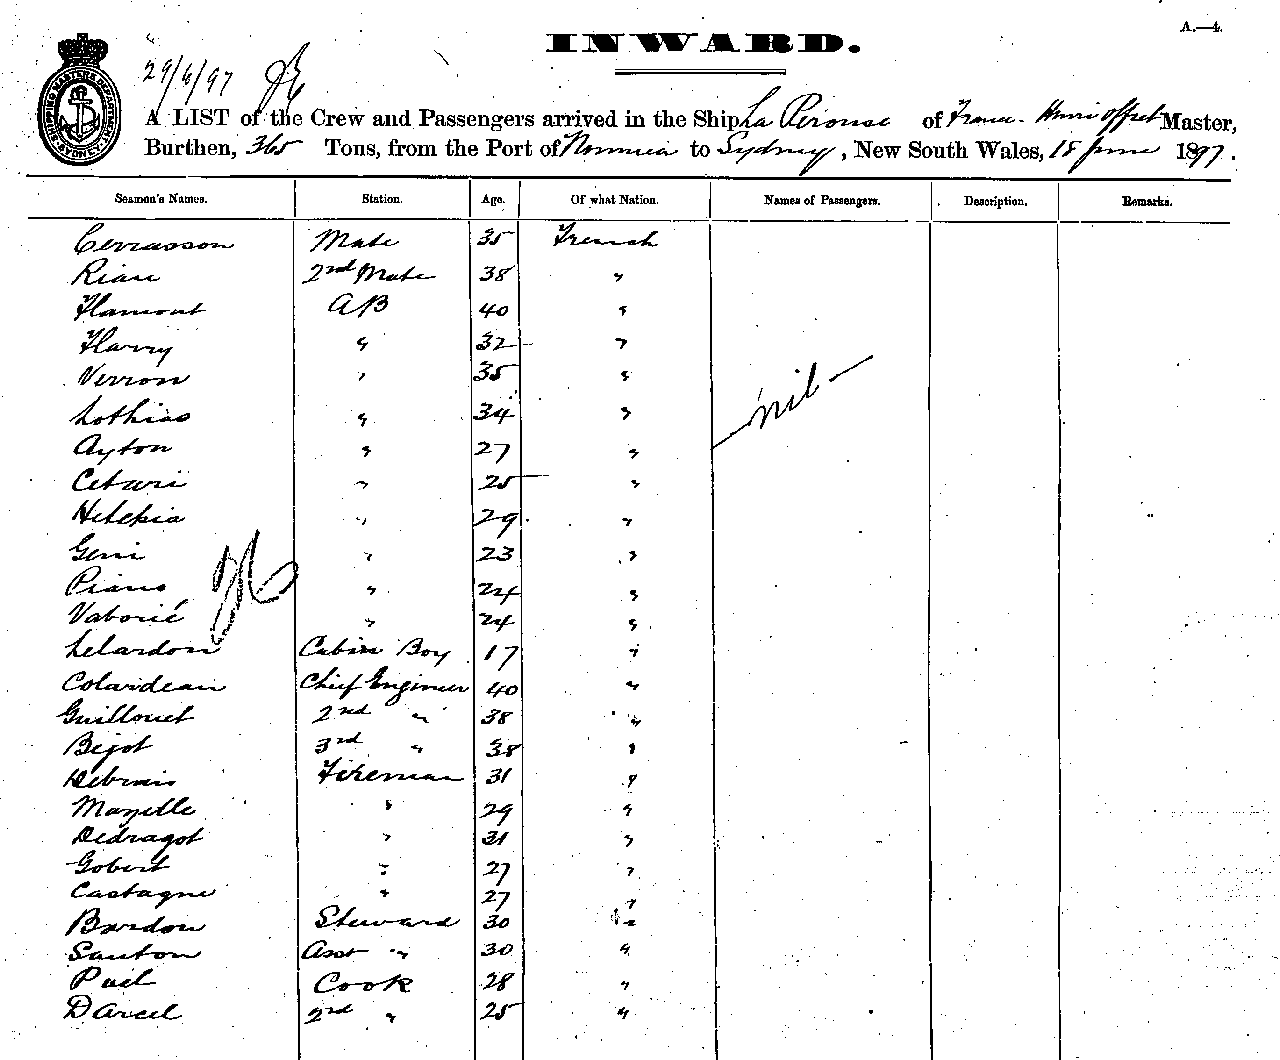 A.—4.
INWARD.
29/6/97
SHIPPING MASTERS DEPARTMENT SYDNEY
A LIST of the Crew and Passengers arrived in the Ship La Perouse of France - Henri Offret Master,
Burthen, 365 Tons, from the Port of Noumea to Sydney, New South Wales, 18 June 1897.
Seamen's Names. Station. Age. Of what Nation. Names of Passengers. Description. Remarks.
Cerrasson Mate 35 French
Riau 2nd Mate 38 "
Hamont AB 40 "
Harry " 32 "
Verron " 35 "
nil
Lothias " 34 "
Ayton " 27 "
Cetari " 25 "
" 29 "
Geni " 23 "
Piano " 24 "
Vaborié " 24 "
Lelardon Cabin Boy 17 "
Colardeau Chief Engineer 40 "
Guillouet 2nd " 38 "
Bejot 3rd " 38 "
Debrais Fireman 31 "
Mazelle " 29 "
Dedragot " 31 "
Gobert " 27 "
Castagne " 27 "
Bardon Steward 30 "
Santon Asst " 30 "
Puel Cook 28 "
Darcel 2nd " 25 "